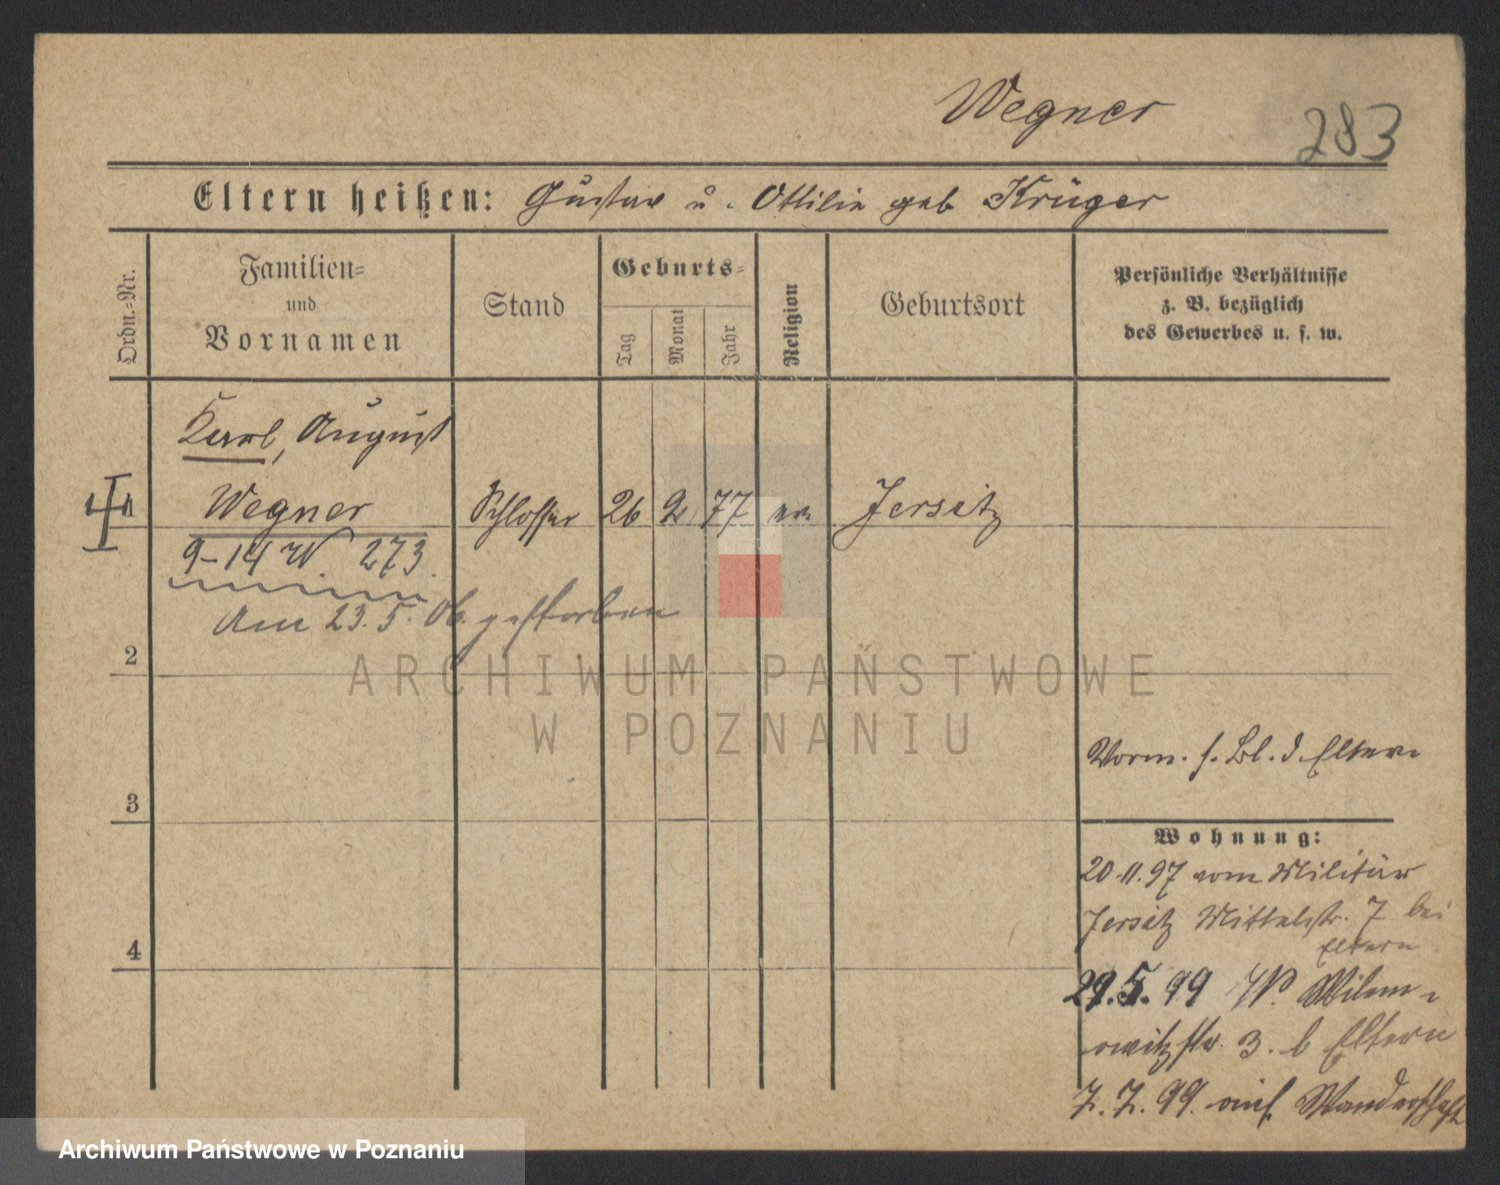 Wegner
283
Eltern heißen: Gustav u. Ottilie geb Krüger
Ordn.-Nr.
Familien-
und
Vornamen
Stand
Geburts-
Tag
Monat
Jahr
Religion
Geburtsort
Persönliche Verhältnisse
z. B. bezüglich
des Gewerbes u. s. w.
Karl, August
Wegner Schlosser 26 2 77 ev Jersitz
9-14 W. 273.
Am 23.5.06. gestorben
2
ARCHIWUM PAŃSTWOWE
W POZNANIU
Vorm. s. Bl. d. Eltern
3
Wohnung:
20.11.97 vom Militär
Jersitz Mittelstr. 7 bei
Eltern
4
29.5.99 Wilam-
owitzstr. 3. b Eltern
7.7.99. auf Wanderschaft
Archiwum Państwowe w Poznaniu